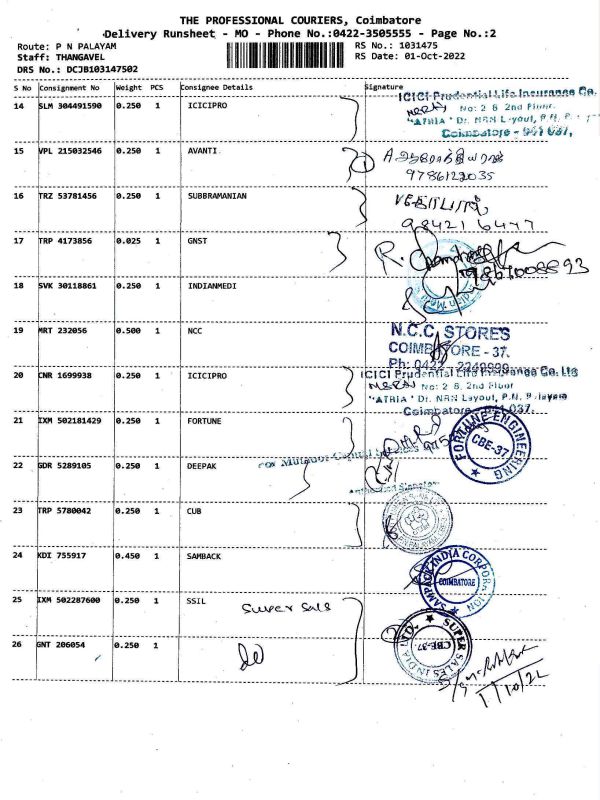 THE PROFESSIONAL COURIERS, Coimbatore
Delivery Runsheet - MO - Phone No.:0422-3505555 - Page No.:2
Route: P N PALAYAM
RS No.: 1031475
Staff: THANGAVEL
RS Date: 01-Oct-2022
DRS No.: DCJB103147502
S No Consignment No Weight PCS Consignee Details Signature
14 SLM 304491590 0.250 1 ICICIPRO
ICICI Prudential Life Insurance Co.
No: 2 8, 2nd Floor
"ATHIA" Dr. NRN Layout, P.N.
Coimbatore - 641 037.
15 VPL 215032546 0.250 1 AVANTI
9786122035
16 TRZ 53781456 0.250 1 SUBBRAMANIAN
98421 6477
17 TRP 4173856 0.025 1 GNST
18 SVK 30118861 0.250 1 INDIANMEDI
19 MRT 232056 0.500 1 NCC
N.C.C. STORES
COIMBATORE - 37.
Ph: 0422
20 CNR 1699938 0.250 1 ICICIPRO
ICICI Prudential Life Insurance Co. Ltd
No: 2 8, 2nd Floor
"ATHIA" Dr. NRN Layout, P.N. P layam
Coimbatore 641 037.
21 IXM 502181429 0.250 1 FORTUNE
FORTUNE ENGINEERING
CBE-37
22 GDR 5289105 0.250 1 DEEPAK
Authorised Signatory
23 TRP 5780042 0.250 1 CUB
24 KDI 755917 0.450 1 SAMBACK
SAMPACK INDIA CORPORATION
COIMBATORE
25 IXM 502287600 0.250 1 SSIL
Super Sals
26 GNT 206054 0.250 1
do
SUPER SALES INDIA LTD.
CBE-37.
1/10/22